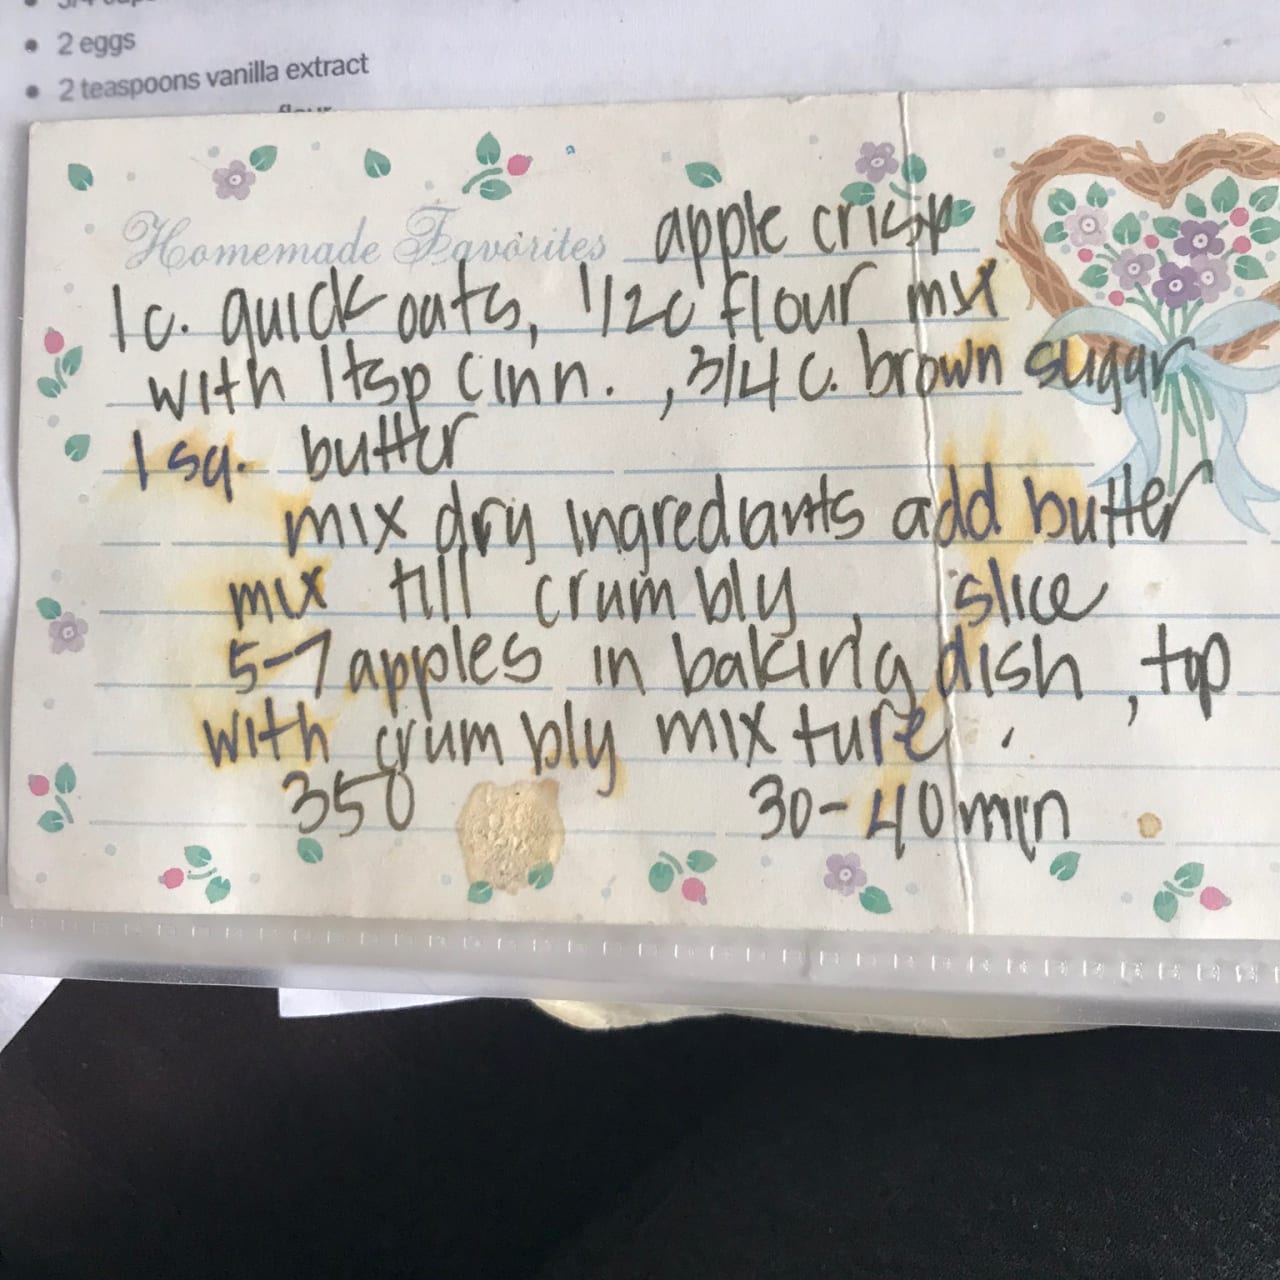 2 eggs
2 teaspoons vanilla extract
Homemade Favorites apple crisp
1c. quick oats, 1/2c flour mix
with 1tsp cinn. , 3/4 c. brown sugar
1 sq. butter
mix dry ingrediants add butter
mix till crumbly , slice
5-7 apples in baking dish , top
with crumbly mixture .
350 30-40 min